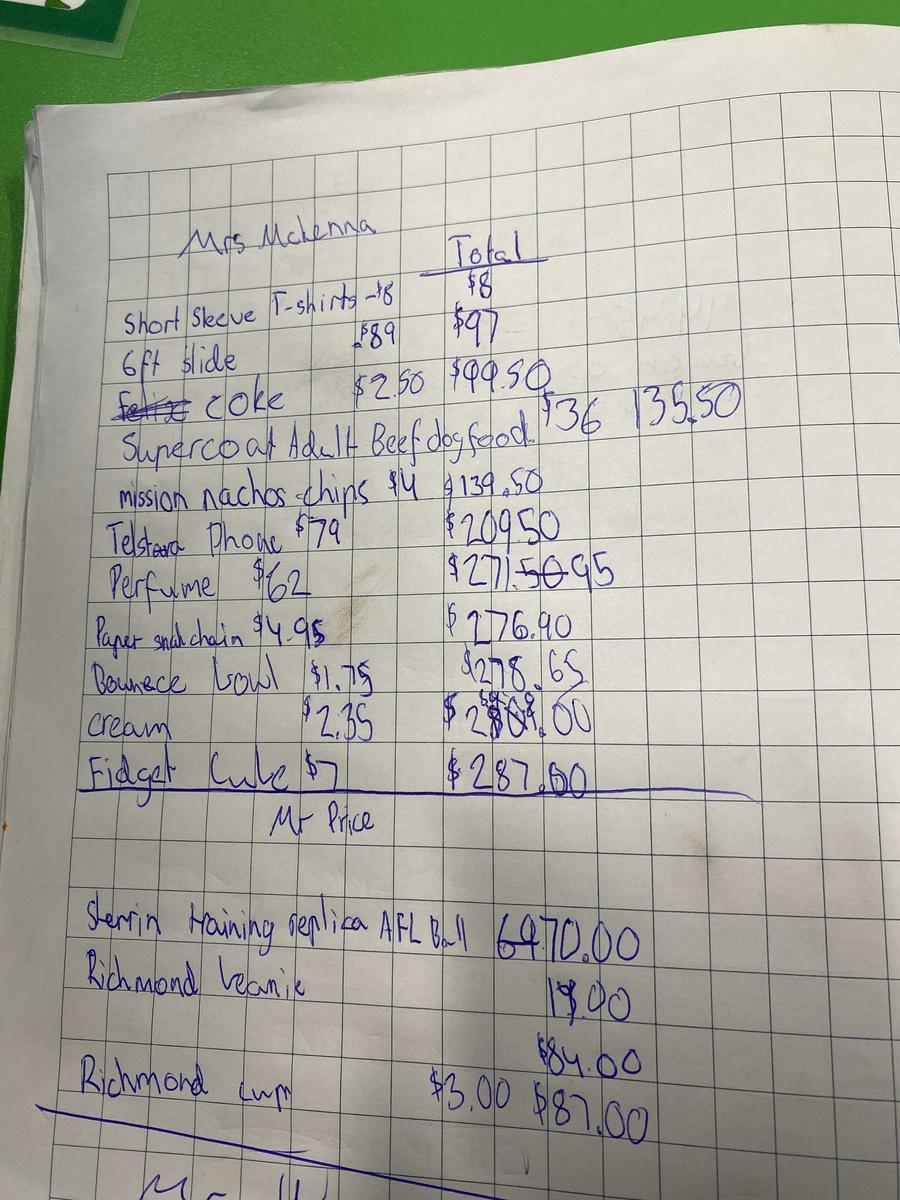 Mrs Mckenna
Total
Short Sleeve T-shirts -$8 $8
6ft slide $89 $97
coke $2.50 $99.50
Supercoat Adult Beef dog food $36 135.50
mission nachos chips $4 $139.50
Telstra Phone $79 $209.50
Perfume $62 $271.50 95
Paper snak chain $4.95 $276.90
Bounece bowl $1.75 $278.65
cream $2.35 .00
Fidget Cube $7 $287.00
Mr Price
Sherrin training replica AFL Ball 69 70.00
Richmond beanie .00
$84.00
Richmond cup $3.00 $87.00